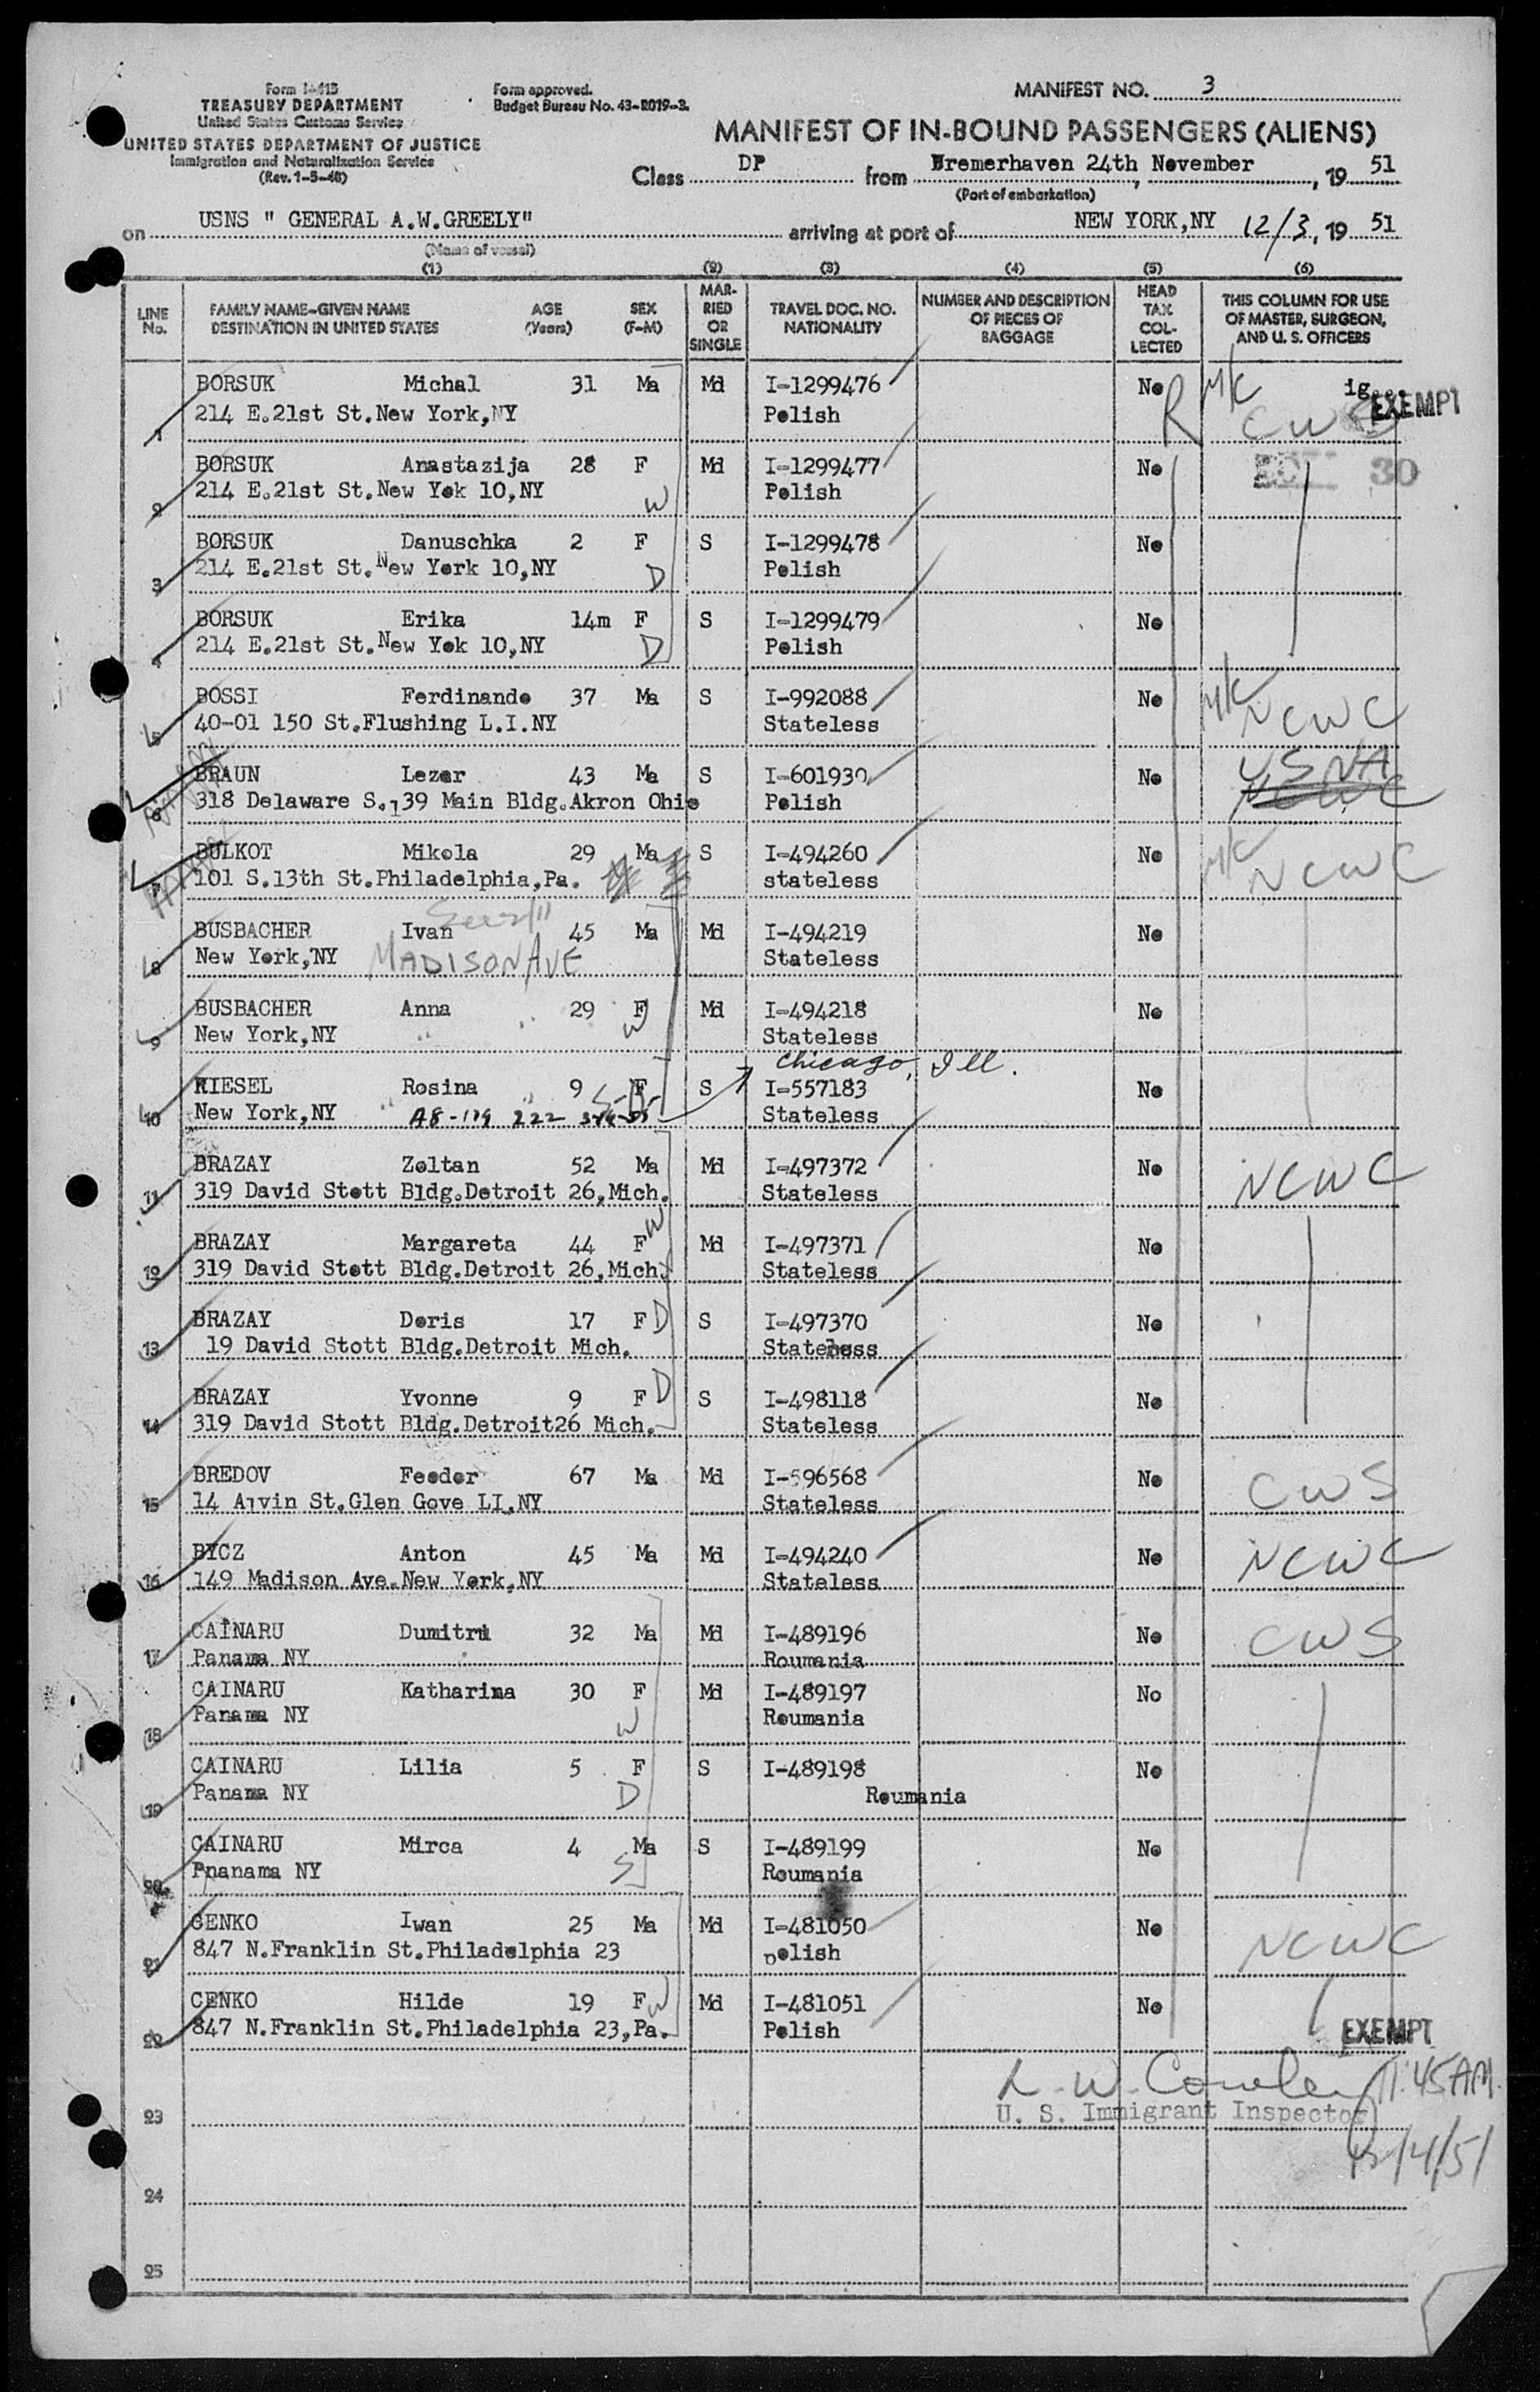 Form I-415
TREASURY DEPARTMENT
United States Customs Service
UNITED STATES DEPARTMENT OF JUSTICE
Immigration and Naturalization Service
(Rev. 1-5-48)
Form approved.
Budget Bureau No. 43-R019-3.
MANIFEST NO. 3
MANIFEST OF IN-BOUND PASSENGERS (ALIENS)
Class DP from Bremerhaven 24th November, 19 51
(Port of embarkation)
on USNS " GENERAL A.W.GREELY" arriving at port of NEW YORK,NY 12/3, 19 51
(Name of vessel)
(1) (2) (3) (4) (5) (6)
LINE No. FAMILY NAME-GIVEN NAME DESTINATION IN UNITED STATES AGE (Years) SEX (F-M) MARRIED OR SINGLE TRAVEL DOC. NO. NATIONALITY NUMBER AND DESCRIPTION OF PIECES OF BAGGAGE HEAD TAX COLLECTED THIS COLUMN FOR USE OF MASTER, SURGEON, AND U. S. OFFICERS
BORSUK Michal 31 Ma Md I-1299476 No
1 214 E.21st St.New York,NY Polish CWS EXEMPT
BORSUK Anastazija 28 F Md I-1299477 No 30
2 214 E.21st St.New Yok 10,NY W Polish
BORSUK Danuschka 2 F S I-1299478 No
3 214 E.21st St.New York 10,NY D Polish
BORSUK Erika 14m F S I-1299479 No
4 214 E.21st St.New Yok 10,NY D Polish
BOSSI Ferdinando 37 Ma S I-992088 No NCWC
5 40-01 150 St.Flushing L.I.NY Stateless
BRAUN Lezer 43 Ma S I-601930 No USNA
6 318 Delaware S.,39 Main Bldg.Akron Ohio Polish NCWC
BULKOT Mikola 29 Ma S I-494260 No NCWC
7 101 S.13th St.Philadelphia,Pa. stateless
BUSBACHER Ivan 45 Ma Md I-494219 No
8 New York,NY MADISON AVE Stateless
BUSBACHER Anna 29 F Md I-494218 No
9 New York,NY " " W Stateless
Chicago, Ill.
KIESEL Rosina 9 F S I-557183 No
10 New York,NY " " A8-119 222 Stateless
BRAZAY Zoltan 52 Ma Md I-497372 No NCWC
11 319 David Stott Bldg.Detroit 26,Mich. Stateless
BRAZAY Margareta 44 F W Md I-497371 No
12 319 David Stott Bldg.Detroit 26,Mich. Stateless
BRAZAY Doris 17 F D S I-497370 No
13 19 David Stott Bldg.Detroit Mich. Stateless
BRAZAY Yvonne 9 F D S I-498118 No
14 319 David Stott Bldg.Detroit26 Mich. Stateless
BREDOV Feodor 67 Ma Md I-596568 No CWS
15 14 Alvin St.Glen Gove LI.NY Stateless
BYCZ Anton 45 Ma Md I-494240 No NCWC
16 149 Madison Ave.New York,NY Stateless
CAINARU Dumitru 32 Ma Md I-489196 No CWS
17 Panama NY Roumania
CAINARU Katharina 30 F Md I-489197 No
18 Panama NY W Roumania
CAINARU Lilia 5 F S I-489198 No
19 Panama NY D Roumania
CAINARU Mirca 4 Ma S I-489199 No
20 Pnanama NY S Roumania
CENKO Iwan 25 Ma Md I-481050 No NCWC
21 847 N.Franklin St.Philadelphia 23 Polish
CENKO Hilde 19 F W Md I-481051 No
22 847 N.Franklin St.Philadelphia 23,Pa. Polish EXEMPT
11:45AM
23 U. S. Immigrant Inspector
12/4/51
24
25